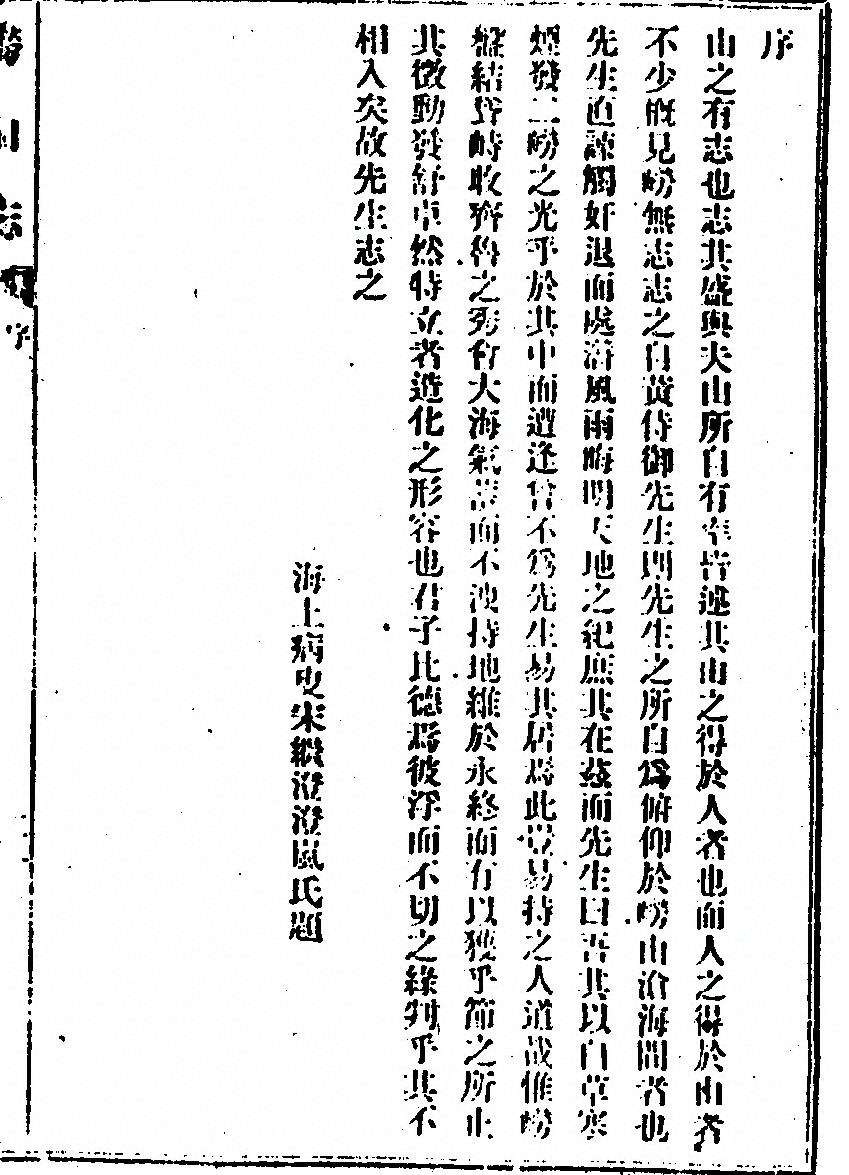 序
山之有志也志其盛與夫山所自有率皆述其山之得於人者也而人之得於山者
不少概見嶗無志志之自黃侍御先生則先生之所自為俯仰於嶗山滄海間者也
先生直諫觸奸退而處潛風雨晦明天地之紀庶其在茲而先生曰吾其以白草寒
煙發二嶗之光乎於其中而遭逢曾不為先生易其居焉此豈易持之人道哉惟嶗
盤結昂峙收齊魯之秀會大海氣蓄而不洩持地維於永終而有以獲乎節之所止
其徵動發舒卓然特立者造化之形容也君子比德焉彼浮而不切之緣判乎其不
相入矣故先生志之
海上病叟宋繼澄澄嵐氏題
志
序